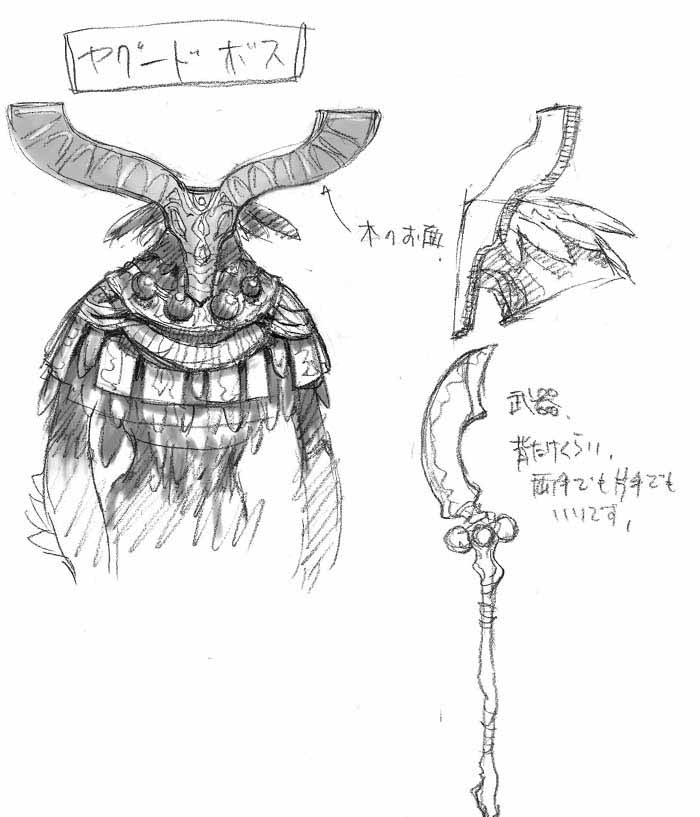 ヤグード ボス
木のお面
武器、
背たけくらい、
両手でも片手でも
いいです、